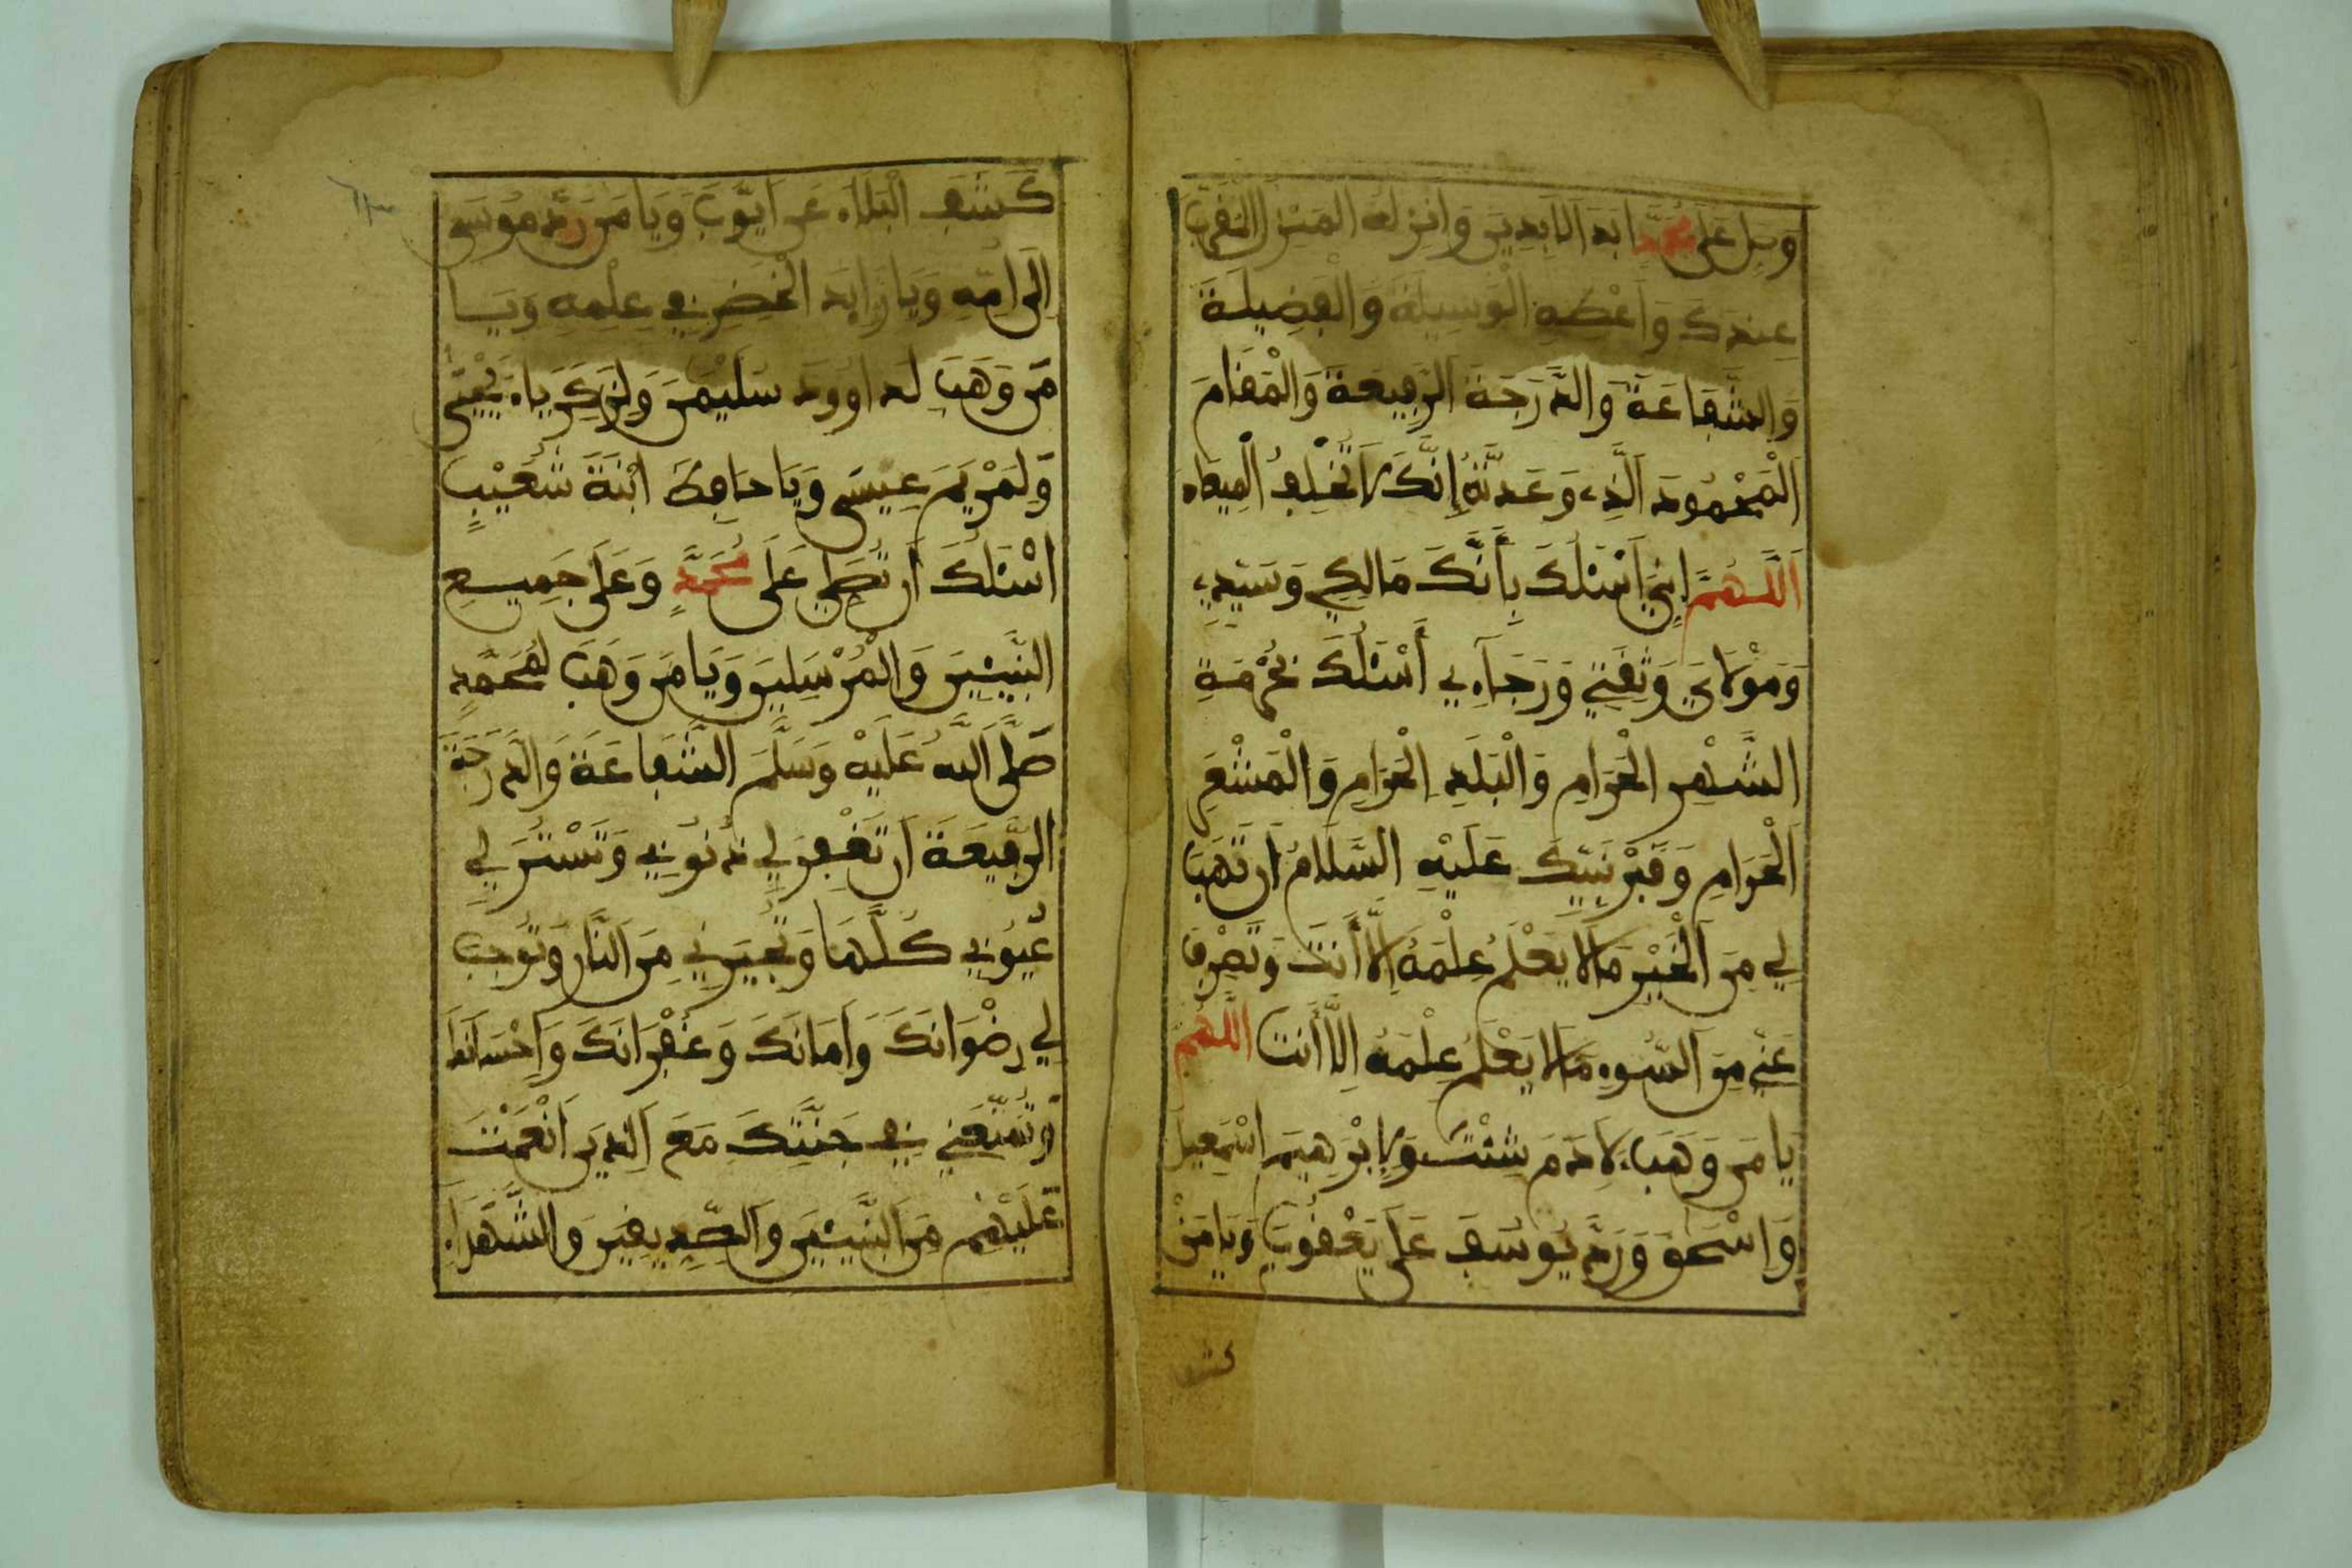 وَصَلِّ عَلَى مُحَمَّدٍ اَبَدَ اَلَابِدِينَ وَاَنْزِلْهُ الْمَنْزِلَ الْمُقَرَّبَ
عِنْدَكَ وَاَعْطِهِ الْوَسِيلَةَ وَالْفَضِيلَةَ
وَالشَّفَاعَةَ وَالدَّرَجَةَ الرَّفِيعَةَ وَالْمَقَامَ
الْمَحْمُودَ الَّذِے وَعَدتَّهُ إِنَّكَ لَا تُخْلِفُ الْمِيعَادَ
اَللَّهُمَّ إِنِّي أَسْئَلُكَ بِأَنَّكَ مَالِكِي وَسَيِّدِے
وَمَوْلَايَ وَثِقَتِي وَرَجَآءِي أَسْئَلُكَ بِحُرْمَةِ
الشَّهْرِ الْحَرَامِ وَالْبَلَدِ الْحَرَامِ وَالْمَشْعَرِ
الْحَرَامِ وَقَبْرِ نَبِيِّكَ عَلَيْهِ السَّلَامُ أَن تَهَبَ
لِي مِنَ الْخَيْرِ مَا لَا يَعْلَمُ عِلْمَهُ إِلَّا أَنتَ وَتَصْرِفَ
عَنِّي مِنَ السُّوءِ مَا لَا يَعْلَمُ عِلْمَهُ إِلَّا أَنتَ اللَّهُمَّ
يَا مَن وَهَبَ لِادَمَ شِئْتَ وَلِإبْرَهِيمَ اسْمَعِيلَ
وَإِسْحَقَ وَرَدَّ يُوسُفَ عَلَى يَعْقُوبَ وَيَا مَنْ
كشف
كَشَفَ الْبَلَاءَ عَنْ اَيُّوبَ وَيَا مَن رَدَّ مُوسَى
إِلَى اُمِّهِ وَيَا زَايِدَ الْخَضِرِ فِي عِلْمِهِ وَيَا
مَن وَهَبَ لِدَاوُودَ سُلَيْمَنَ وَلِزَكَرِيَّاءَ يَحْيَى
وَلِمَرْيَمَ عِيسَى وَيَا حَافِظَ ابْنَةَ شُعَيْبٍ
اَسْئَلُكَ أَن تُصَلِّيَ عَلَى مُحَمَّدٍ وَعَلَى جَمِيعِ
النَّبِيـِٕينَ وَالْمُرْسَلِينَ وَيَا مَن وَهَبَ لِمُحَمَّدٍ
صَلَّى اَللَّهُ عَلَيْهِ وَسَلَّمَ الشَّفَاعَةَ وَالدَّرَجَةَ
الرَّفِيعَةَ أَن تَغْفِرَ لِي ذُنُوبِي وَتَسْتُرَ لِي
عُيُوبِي كُلَّهَا وَتُجِيرَنِي مِنَ النَّارِ وَتُوجِبَ
لِي رِضْوَانَكَ وَاَمَانَكَ وَغُفْرَانَكَ وَإِحْسَانَكَ
وَتُمَتِّعَنِي فِي جَنَّتِكَ مَعَ الَّذِينَ أَنْعَمْتَ
عَلَيْهِم مِّنَ النَّبِيـِٕينَ وَالصِّدِّيقِينَ وَالشُّهَدَاءِ